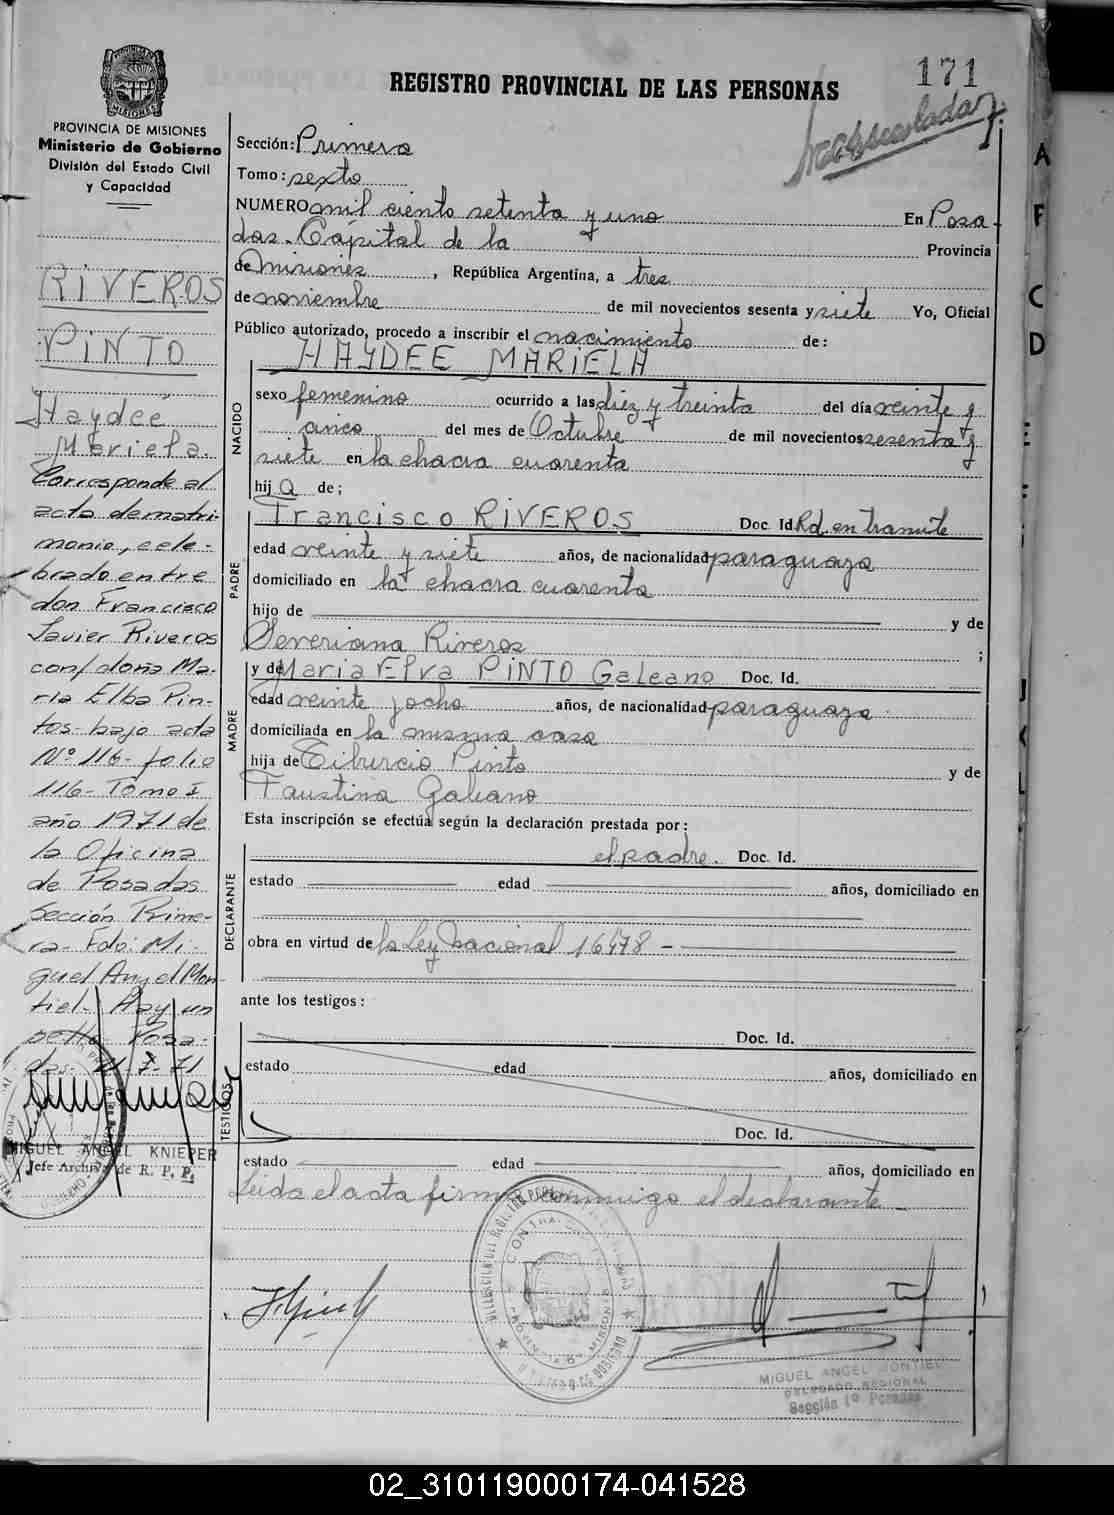 171
REGISTRO PROVINCIAL DE LAS PERSONAS
PROVINCIA DE MISIONES
Ministerio de Gobierno
División del Estado Civil
y Capacidad
RIVEROS
PINTO
Haydeé
Mariela.
Corresponde al
acta de matri-
monio, cele-
brado entre
don Francisco
Javier Riveros
con/ doña Ma-
ria Elba Pin-
tos- bajo acta
Nº 116- folio
116- Tomo I
año 1971 de
la Oficina
de Posadas
Sección Prime-
ra- Fdo: Mi-
guel Angel Mon-
tiel- Hay un
sello- Posa-
das-
7-71
MIGUEL ANGEL KNIEPER
Jefe Archivo de R. P. P.
Sección: Primera
Tomo: sexto
NUMERO mil ciento setenta y uno En Posa-
das- Capital de la Provincia
de Misiones, República Argentina, a tres
de noviembre de mil novecientos sesenta y siete Yo, Oficial
Público autorizado, procedo a inscribir el nacimiento de:
HAYDEE MARIELA
NACIDO
sexo femenino ocurrido a las diez y treinta del día veinte y
cinco del mes de Octubre de mil novecientos sesenta y
siete en la chacra cuarenta
hija de;
PADRE
Francisco RIVEROS Doc. Id. Rd. en tramite
edad veinte y siete años, de nacionalidad paraguaya
domiciliado en la chacra cuarenta
hijo de y de
Severiana Riveros ;
MADRE
y de Maria Elva PINTO Galeano Doc. Id.
edad veinte y ocho años, de nacionalidad paraguaya
domiciliada en la misma casa
hija de Tiburcio Pinto y de
Faustina Galeano
Esta inscripción se efectúa según la declaración prestada por:
DECLARANTE
el padre. Doc. Id.
estado edad años, domiciliado en
obra en virtud de la Ley Nacional 16478 -
ante los testigos:
TESTIGOS
Doc. Id.
estado edad años, domiciliado en
Doc. Id.
estado edad años, domiciliado en
Leida el acta firma conmigo el declarante -
MIGUEL ANGEL MONTIEL
DELEGADO REGIONAL
Sección 1º Posadas
A
F
C
D
02_310119000174-041528